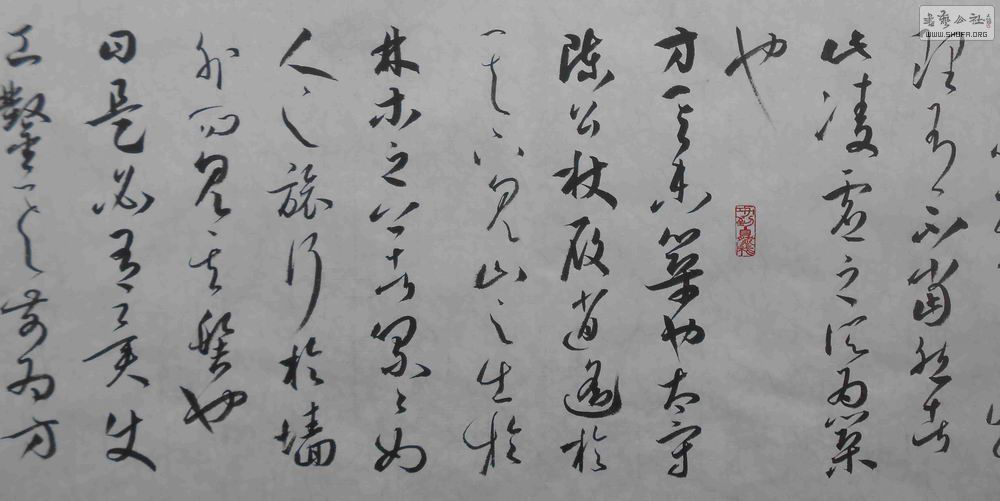 書藝公社
WWW.SHUFA.ORG
理有不當然者
此凌虚之所為築
也
方其未築也太守
陳公杖履逍遥於
其下見山之出於
林木之上者累々如
人之旅行於墻
外而見其髻也
曰是必有異使
工鑿其前為方